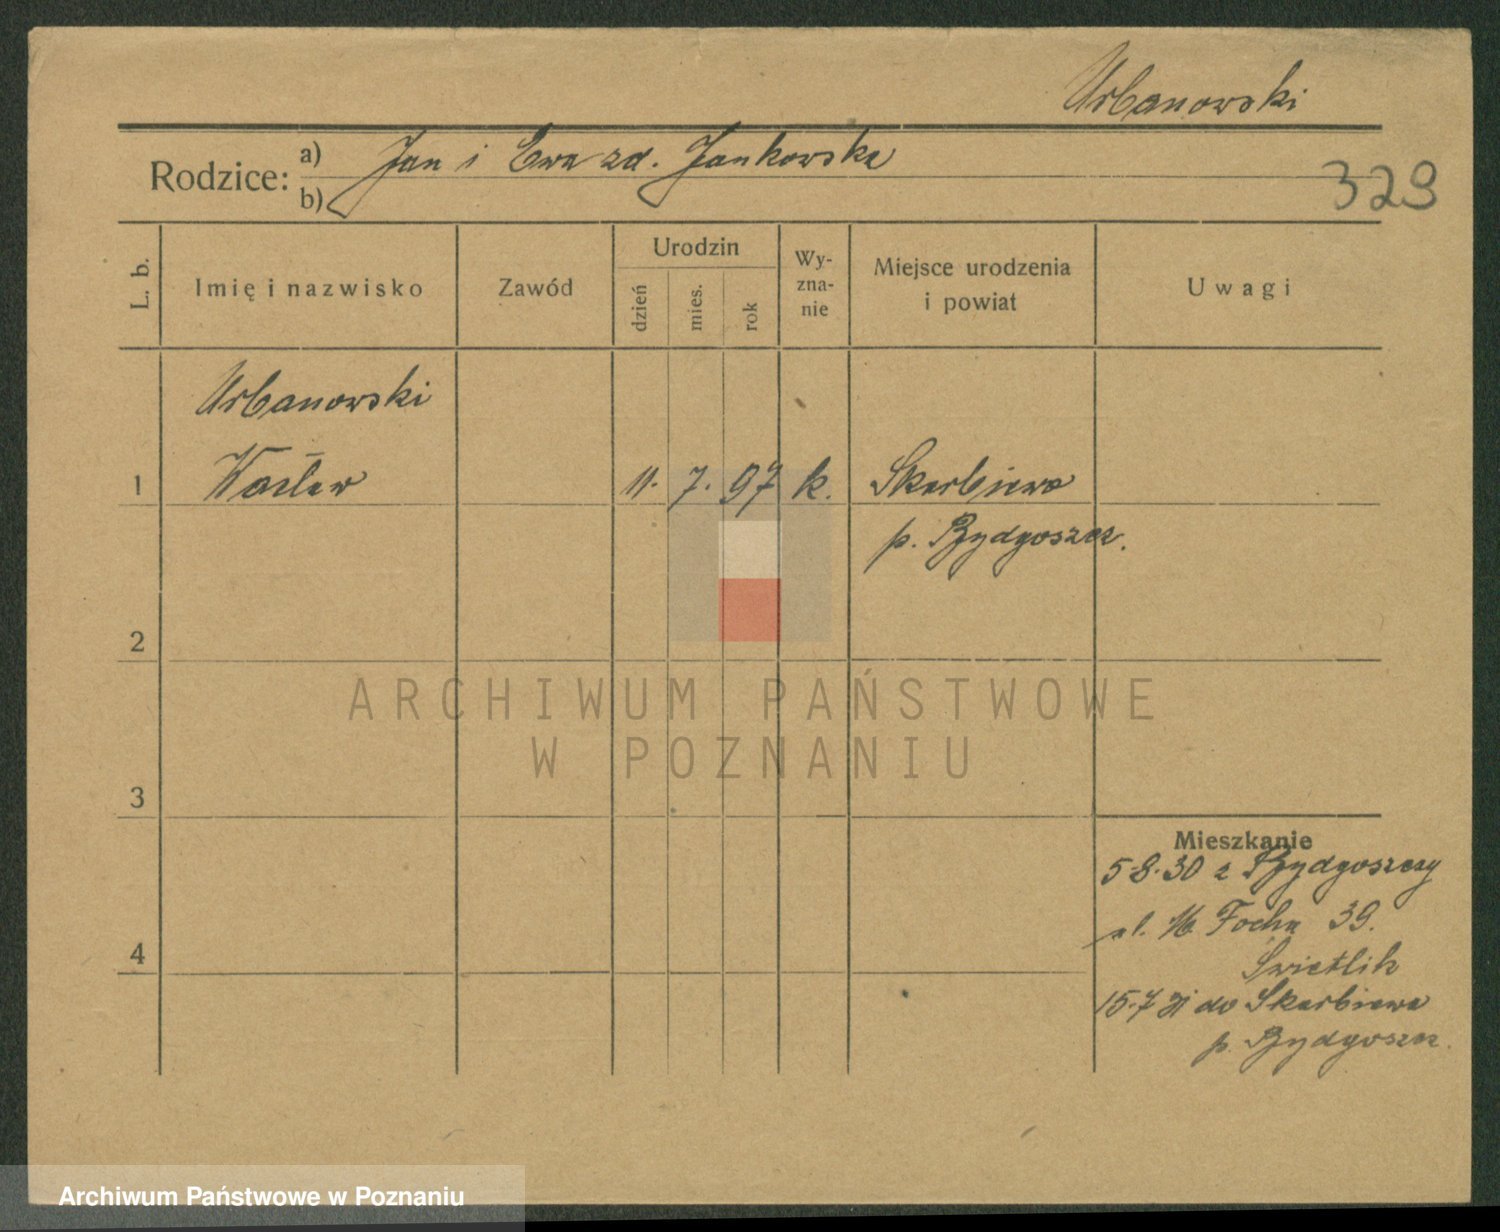 Urbanowski
Rodzice: a) Jan i Ewa zd. Jankowska
b)
329
L. b.
Imię i nazwisko
Zawód
Urodzin
dzień
mies.
rok
Wy-
zna-
nie
Miejsce urodzenia
i powiat
Uwagi
Urbanowski
1 Wacław 11. 7. 97 k. Skarbiewo
p. Bydgoszcz.
2
3
4
ARCHIWUM PAŃSTWOWE
W POZNANIU
Mieszkanie
5.8.30 z Bydgoszczy
ul. M Focha 39.
Świetlik
15.7 31 do Skarbiewa
p. Bydgoszcz.
Archiwum Państwowe w Poznaniu